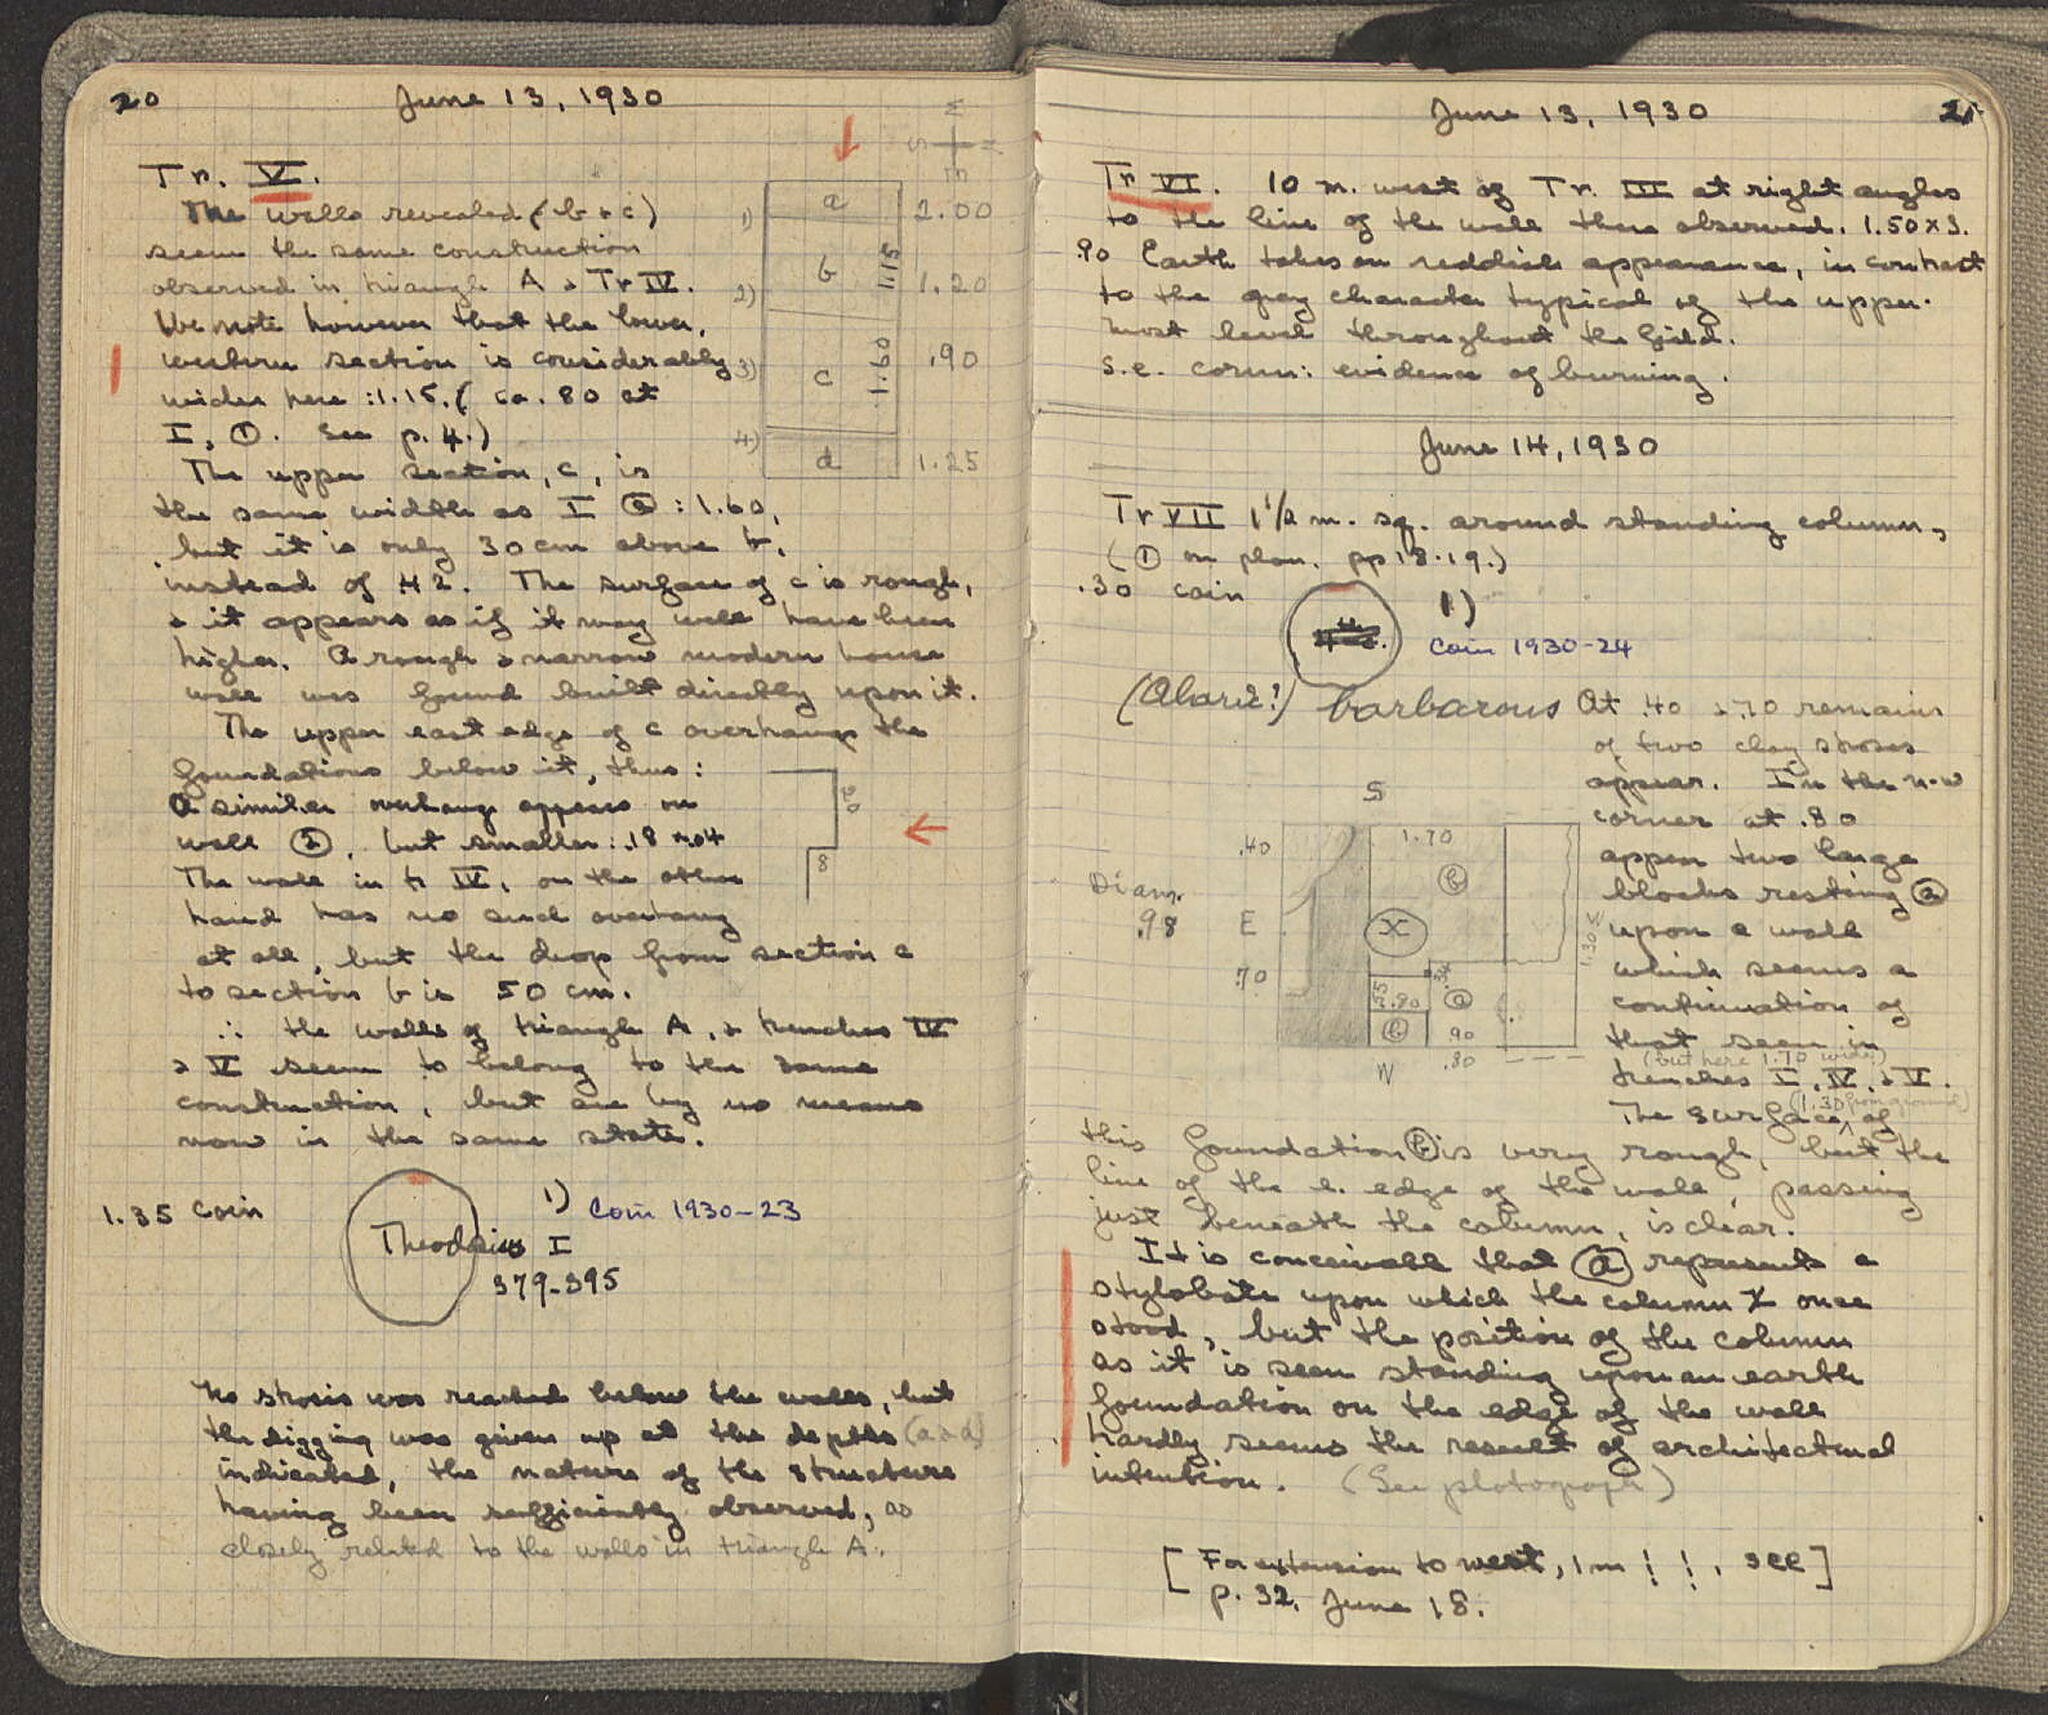 20
June 13, 1930
Tr. V.
The walls revealed (b + c)
seem the same construction
observed in triangle A & Tr IV.
We note however that the lower,
western section is considerably
wider here : 1.15. ( ca. 80 at
I, ①. See p. 4.)
The upper section, c, is
the same width as I ⓐ : 1.60,
but it is only 30 cm above b,
instead of 42. The surface of c is rough,
& it appears as if it may well have been
higher. A rough & narrow modern house
wall was found built directly upon it.
The upper east edge of c overhangs the
foundations below it, thus :
A similar overhang appears on
wall ②, but smaller : .18 × .04
The wall in tr IV, on the other
hand has no such overhang
at all, but the drop from section c
to section b is 50 cm.
∴ the walls of triangle A, & trenches IV
& V seem to belong to the same
construction, but are by no means
now in the same state.
1.35 coin
1) Coin 1930-23
Theodosius I
379-395
No strosis was reached below the walls, but
the digging was given up at the depths (a & d)
indicated, the nature of the structure
having been sufficiently observed, as
closely related to the walls in triangle A.
S
N
1)
2)
3)
4)
a
b
c
d
1.15
1.60
2.00
1.20
.90
1.25
8
June 13, 1930
21
Tr VI. 10 m. west of Tr. III at right angles
to the line of the wall there observed. 1.50 × 3.
.90 Earth takes on reddish appearance, in contrast
to the gray character typical of the upper-
most level throughout the field.
S.e. corner: evidence of burning.
June 14, 1930
Tr VII 1 1/2 m. sq. around standing column,
(① on plan. pp 18-19.)
.30 coin
1)
Coin 1930-24
(Alaric?) barbarous
At .40 & .70 remains
of two clay stroses
appear. In the n-w
corner at .80
appear two large
blocks resting ⓐ
upon a wall
which seems a
continuation of
that seen in
(but here 1.70 wide!)
trenches I, IV, & V.
(1.30 from ground)
The surface, of
this foundation ⓑ is very rough, but the
line of the e. edge of the wall, passing
just beneath the column, is clear.
It is conceivable that ⓐ represents a
stylobate upon which the column X once
stood, but the position of the column
as it is seen standing upon an earth
foundation on the edge of the wall
hardly seems the result of architectural
intention. (See photograph)
[ For extension to west, 1 m ! ! , see ]
p. 32, June 18.
S
.40
1.70
b
Diam.
.98
E
X
1.30
W
.70
.55
.80
a
b
.90
.80
N